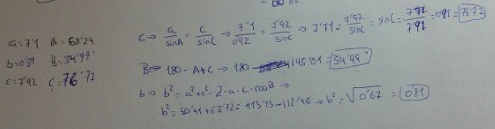 a=7'1 A=68'24
b=0'81 B=34'99
c=7'92 C=76'77
C → a/sinA = c/sinC → 7'1/0'92 = 7'92/sinC → 7'71 = 7'92/sinC = sinC = 7'92/7'71 = 0'81 = 76'77
B → 180 - A+C → 180 - 145'01 = 34'99
b → b² = a²+c² - 2·a·c·cosB →
b² = 50'41+62'72 = 113'13-112'46 → b² = √0'67 = 0'81